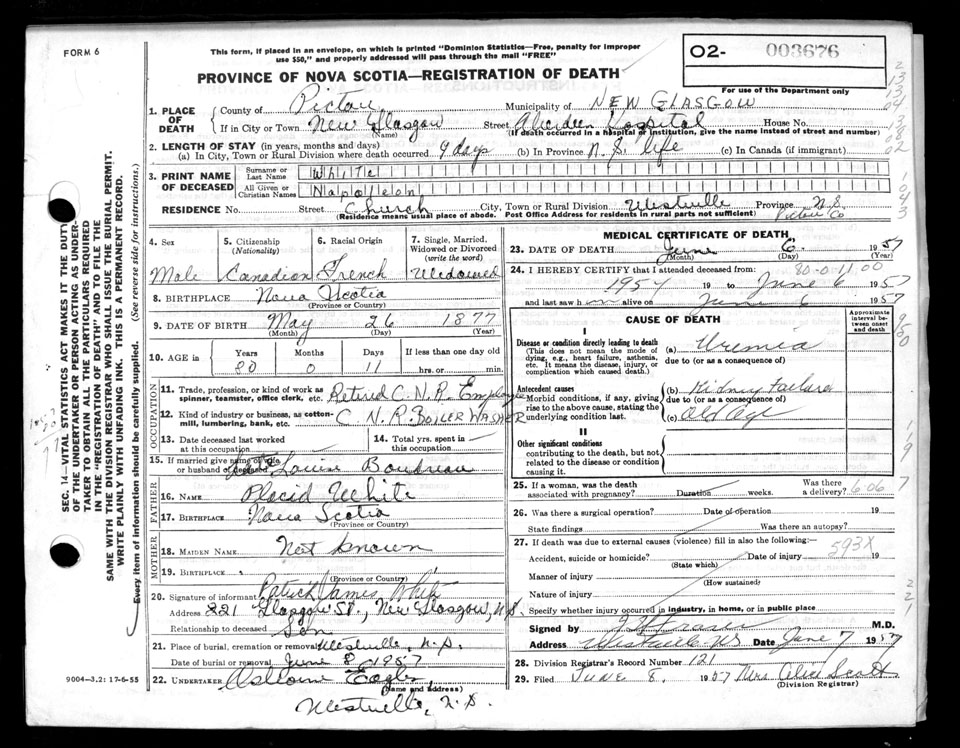 FORM 6
This form, if placed in an envelope, on which is printed "Dominion Statistics—Free, penalty for improper
use $50," and properly addressed will pass through the mail "FREE"
O2- 003676
For use of the Department only
PROVINCE OF NOVA SCOTIA—REGISTRATION OF DEATH
1. PLACE OF DEATH
County of Pictou Municipality of NEW GLASGOW
If in City or Town New Glasgow Street Aberdeen Hospital House No.
(Name) (If death occurred in a hospital or institution, give the name instead of street and number)
2. LENGTH OF STAY (in years, months and days)
(a) In City, Town or Rural Division where death occurred 9 days (b) In Province N.S. life (c) In Canada (if immigrant)
3. PRINT NAME OF DECEASED
Surname or Last Name White
All Given or Christian Names Napoleon
RESIDENCE No. Street Church City, Town or Rural Division Westville Province N.S.
(Residence means usual place of abode. Post Office Address for residents in rural parts not sufficient) Pictou Co
4. Sex Male
5. Citizenship (Nationality) Canadian
6. Racial Origin French
7. Single, Married, Widowed or Divorced (write the word) Widowed
8. BIRTHPLACE Nova Scotia
(Province or Country)
9. DATE OF BIRTH May 26 1877
(Month) (Day) (Year)
10. AGE in Years 80 Months 0 Days 11 If less than one day old hrs. or min.
OCCUPATION
11. Trade, profession, or kind of work as spinner, teamster, office clerk, etc. Retired C.N.R. Employee
12. Kind of industry or business, as cotton-mill, lumbering, bank, etc. C N R BOILER WASHER
13. Date deceased last worked at this occupation
14. Total yrs. spent in this occupation
15. If married give name of wife or husband of deceased Louise Boudreau
FATHER
16. NAME Placid White
17. BIRTHPLACE Nova Scotia
(Province or Country)
MOTHER
18. MAIDEN NAME Not known
19. BIRTHPLACE
(Province or Country)
20. Signature of informant Patrick James White
Address 221 Glasgow St., New Glasgow, N.S.
Relationship to deceased Son
21. Place of burial, cremation or removal Westville, N.S.
Date of burial or removal June 8 1957
22. UNDERTAKER Eagles,
(Name and address)
Westville, N.S.
9004—3.2: 17-6-55
MEDICAL CERTIFICATE OF DEATH
23. DATE OF DEATH June 6 1957
(Month) (Day)
24. I HEREBY CERTIFY that I attended deceased from: 80-0-11.00
1957 19 to June 6 1957
and last saw him alive on June 6 1957
CAUSE OF DEATH
Approximate interval between onset and death
I
Disease or condition directly leading to death
(This does not mean the mode of dying, e.g., heart failure, asthenia, etc. It means the disease, injury, or complication which caused death.)
(a) Uremia
due to (or as a consequence of)
Antecedent causes
Morbid conditions, if any, giving rise to the above cause, stating the underlying condition last.
(b) Kidney Failure
due to (or as a consequence of)
(c) Old Age
II
Other significant conditions
contributing to the death, but not related to the disease or condition causing it.
25. If a woman, was the death associated with pregnancy? Duration weeks. Was there a delivery?
26. Was there a surgical operation? Date of operation 19
State findings Was there an autopsy?
27. If death was due to external causes (violence) fill in also the following:— 593X
Accident, suicide or homicide? Date of injury 19
(State which)
Manner of injury
(How sustained)
Nature of injury
Specify whether injury occurred in industry, in home, or in public place
Signed by M.D.
Address Westville N.S. Date June 7 1957
28. Division Registrar's Record Number 121
29. Filed June 8. 1957 Mrs
(Division Registrar)
SEC. 14—VITAL STATISTICS ACT MAKES IT THE DUTY
OF THE UNDERTAKER OR PERSON ACTING AS UNDER-
TAKER TO OBTAIN ALL THE PARTICULARS REQUIRED
IN THE "REGISTRATION OF DEATH" AND TO FILE THE
SAME WITH THE DIVISION REGISTRAR WHO SHALL ISSUE THE BURIAL PERMIT.
WRITE PLAINLY WITH UNFADING INK. THIS IS A PERMANENT RECORD.
Every item of information should be carefully supplied. (See reverse side for instructions.)